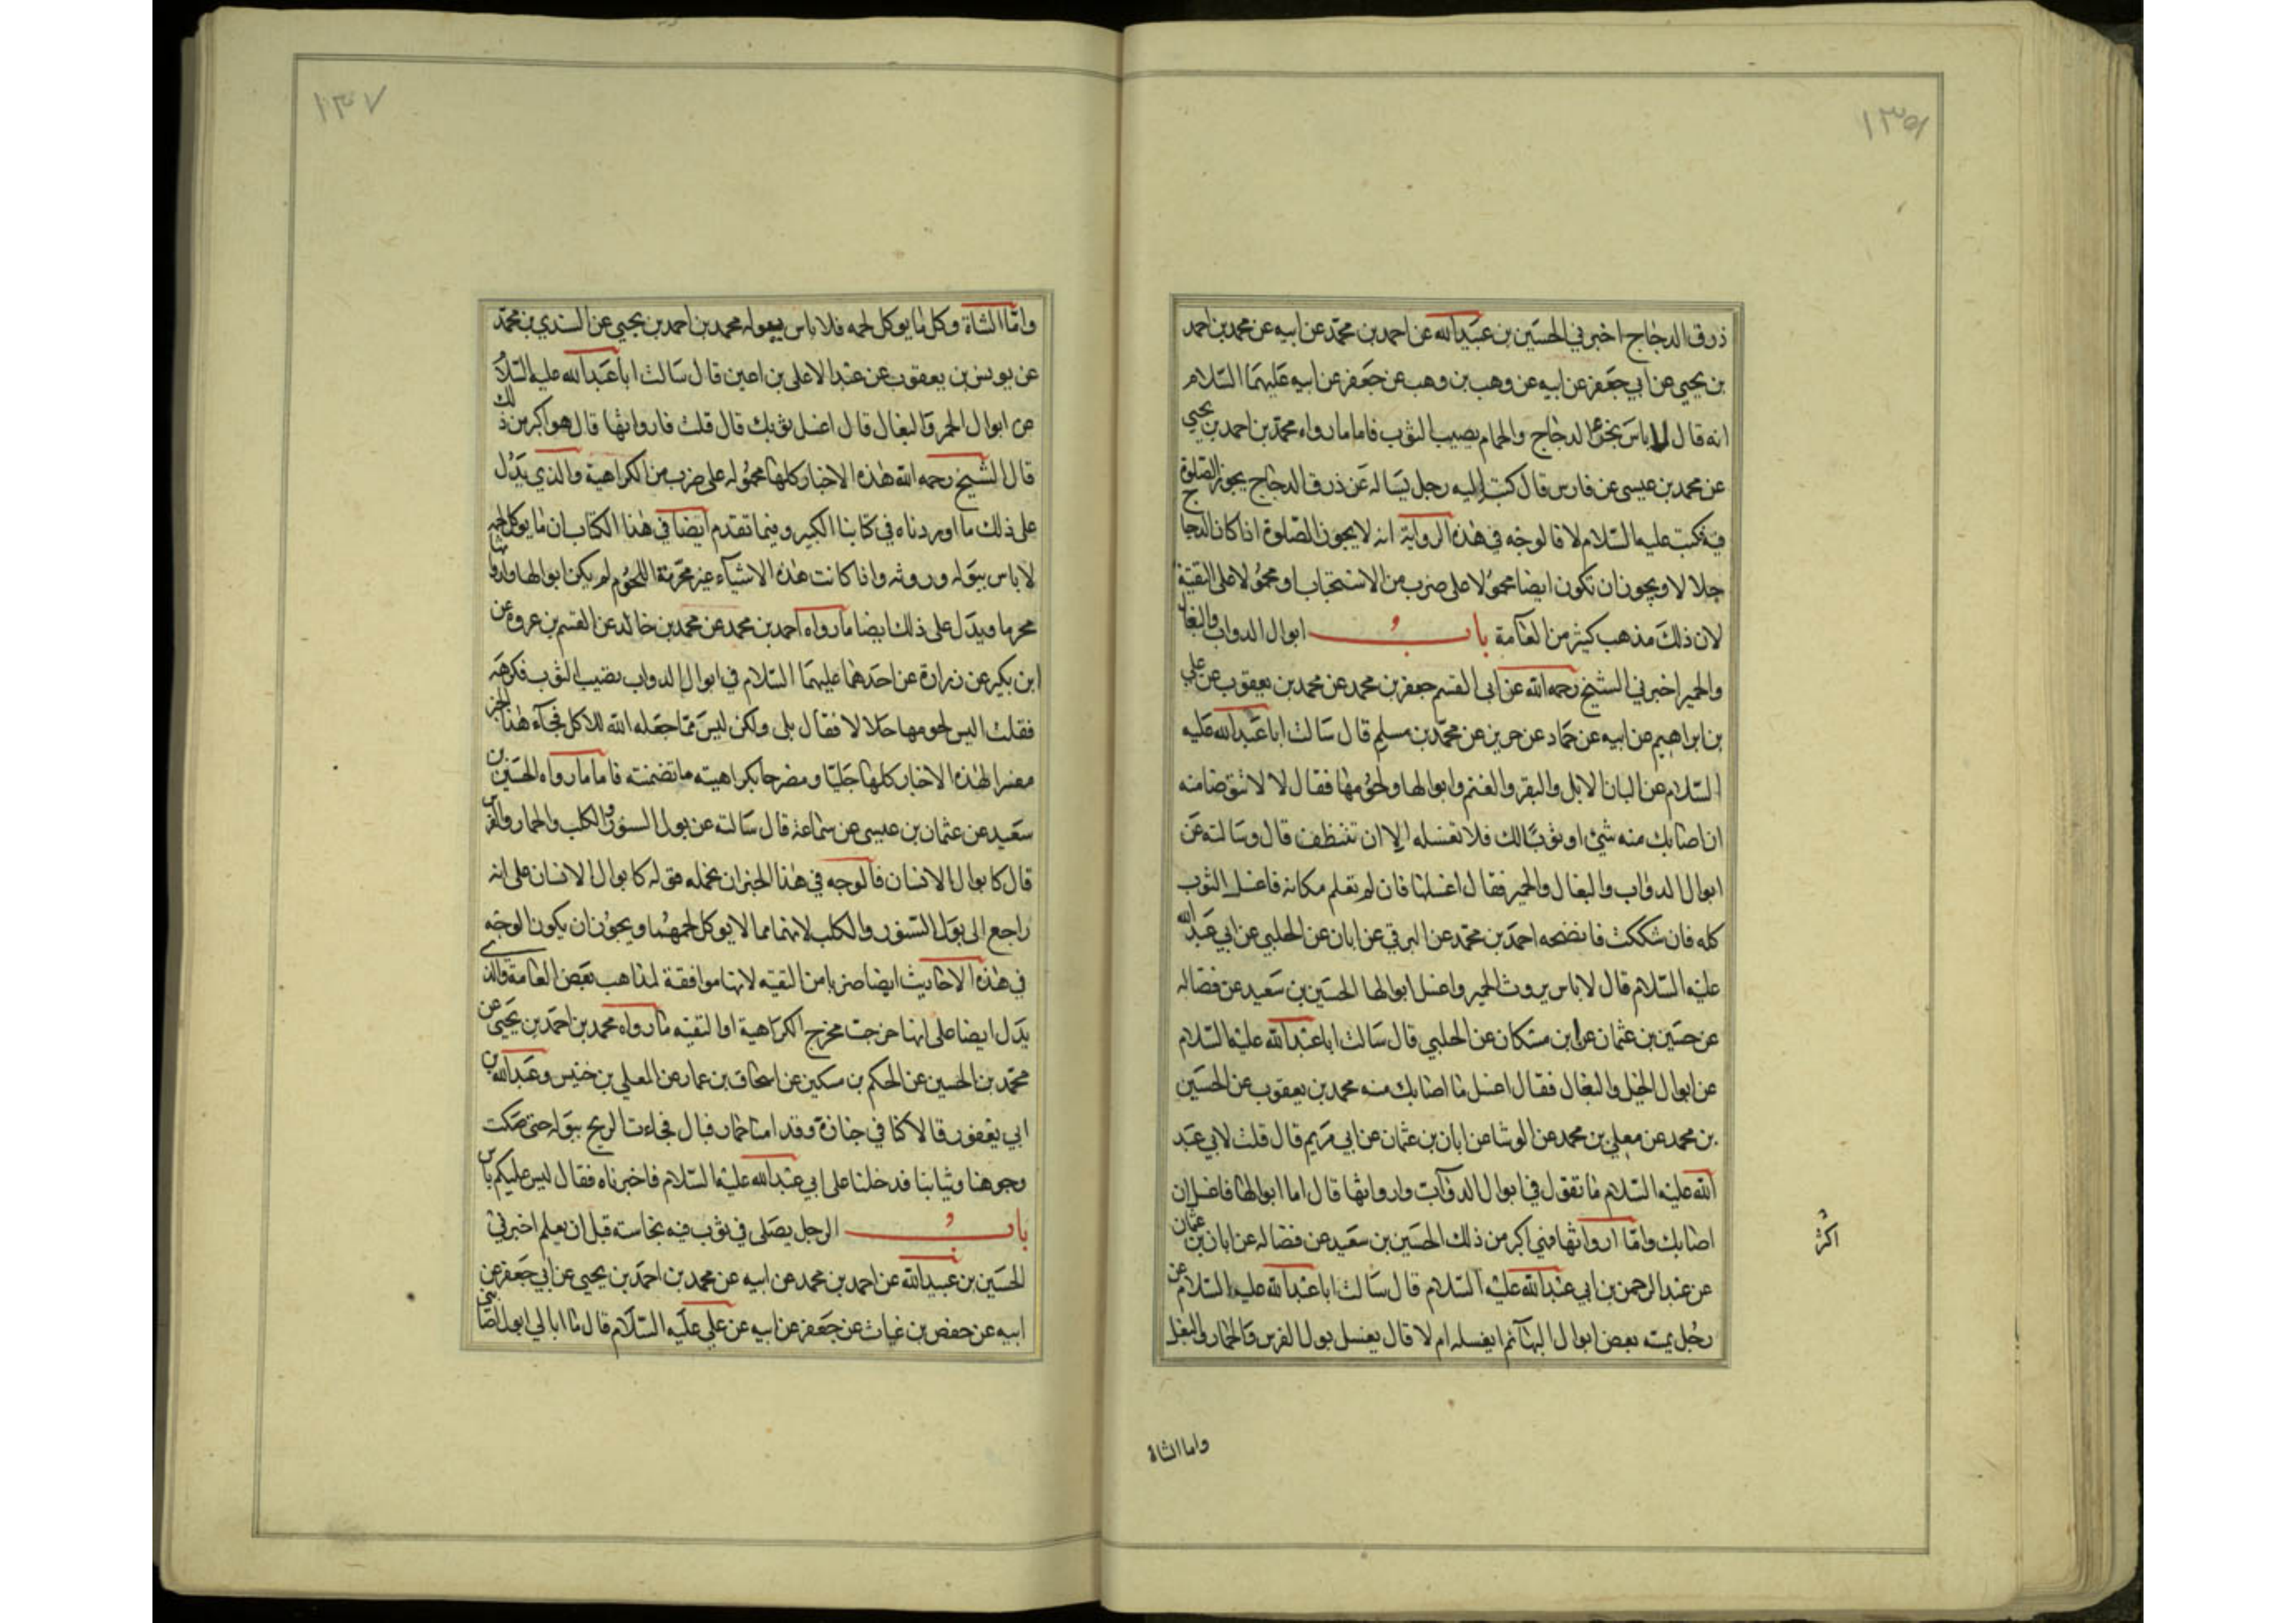 ١٣٥
ذرق الدجاج اخبرني الحسين بن عبيد الله عن احمد بن محمد عن ابيه عن محمد بن احمد
بن يحيى عن ابي جعفر عن ابيه عن وهب بن وهب عن جعفر عن ابيه عليهما السلام
انه قال لا باس بخرء الدجاج والحمام يصيب الثوب فاما ما رواه محمد بن احمد بن يحيى
عن محمد بن عيسى عن فارس قال كتب اليه رجل يساله عن ذرق الدجاج يجوز الصلوة
فيه فكتب عليه السلام لا فالوجه في هذه الرواية انه لا يجوز الصلوة اذا كان الدجاج
جلالا ويجوز ان تكون ايضا محمولا على ضرب من الاستحباب او محمولا على التقية
لان ذلك مذهب كثير من العامة باب ابوال الدواب والبغال
والحمير اخبرني الشيخ رحمه الله عن ابي القسم جعفر بن محمد عن محمد بن يعقوب عن علي
بن ابراهيم عن ابيه عن حماد عن حريز عن محمد بن مسلم قال سالت ابا عبد الله عليه
السلام عن البان الابل والبقر والغنم وابوالها ولحومها فقال لا لا توضا منه
ان اصابك منه شئ او ثوبا لك فلا تغسله الا ان تتنظف قال وسالته عن
ابوال الدواب والبغال والحمير فقال اغسلها فان لم تعلم مكانه فاغسل الثوب
كله فان شككت فانضحه احمد بن محمد عن البرقي عن ابان عن الحلبي عن ابي عبد الله
عليه السلام قال لا باس بروث الحمير واغسل ابوالها الحسين بن سعيد عن فضاله
عن حسين بن عثمان عن ابن مسكان عن الحلبي قال سالت ابا عبد الله عليه السلام
عن ابوال الخيل والبغال فقال اغسل ما اصابك منه محمد بن يعقوب عن الحسين
بن محمد عن معلى بن محمد عن الوشا عن ابان بن عثمان عن ابي مريم قال قلت لابي عبد
الله عليه السلام ما تقول في ابوال الدواب وارواثها قال اما ابوالها فاغسل ان
اصابك واما ارواثها فهي اكبر من ذلك الحسين بن سعيد عن فضاله عن ابان بن عثمان
اكثر
عن عبد الرحمن بن ابي عبد الله عليه السلام قال سالت ابا عبد الله عليه السلام عن
رجل يمسه بعض ابوال البهائم ايغسله ام لا قال يغسل بول الفرس والحمار والبغل
واما الشاة
١٣٧
واما الشاة وكل ما يوكل لحمه فلا باس ببوله محمد بن احمد بن يحيى عن السندي بن محمد
عن يونس بن يعقوب عن عبد الاعلى بن اعين قال سالت ابا عبد الله عليه السلام
عن ابوال الحمر والبغال قال اغسل ثوبك قال قلت فاروانها قال هو اكبر من ذلك
قال الشيخ رحمه الله هذه الاخبار كلها محمولة على ضرب من الكراهية والذي يدل
على ذلك ما اوردناه في كتابنا الكبير وفيما تقدم ايضا في هذا الكتاب ان ما يوكل لحمه
لا باس ببوله وروثه واذا كانت هذه الاشياء غير محرمة اللحوم لم يكن ابوالها وارواثها
محرما ويدل على ذلك ايضا ما رواه احمد بن محمد عن محمد بن خالد عن القسم بن عروه عن
ابن بكير عن زرارة عن احدهما عليهما السلام في ابوال الدواب يصيب الثوب فكرهه
فقلت اليس لحومها حلالا فقال بلى ولكن ليس مما جعله الله للاكل فجاء هذا الخبر
مفسرا لهذه الاخبار كلها جليا ومصرحا بكراهيته ما تضمنته فاما ما رواه الحسين بن
سعيد عن عثمان بن عيسى عن سماعة قال سالته عن بول السنور والكلب والحمار والفرس
قال كابوال الانسان فالوجه في هذا الخبر ان نحمله قوله كابوال الانسان على انه
راجع الى بول السنور والكلب لانهما مما لا يوكل لحمهما ويجوز ان يكون الوجه
في هذه الاحاديث ايضا ضربا من التقيه لانها موافقة لمذاهب بعض العامة والذي
يدل ايضا على انها خرجت مخرج الكراهية او التقيه ما رواه محمد بن احمد بن يحيى عن
محمد بن الحسين عن الحكم بن مسكين عن اسحاق بن عمار عن المعلى بن خنيس وعبد الله بن
ابي يعفور قالا كنا في جنازة وقد امنا حمار فبال فجاءت الريح ببوله حتى صكت
وجوهنا وثيابنا فدخلنا على ابي عبد الله عليه السلام فاخبرناه فقال ليس عليكم باس
باب الرجل يصلى في ثوب فيه نجاسته قبل ان يعلم اخبرني
الحسين بن عبيد الله عن احمد بن محمد عن ابيه عن محمد بن احمد بن يحيى عن ابي جعفر عن
ابيه عن حفص بن غياث عن جعفر عن ابيه عن علي عليه السلام قال ما ابالي ابول اصابني